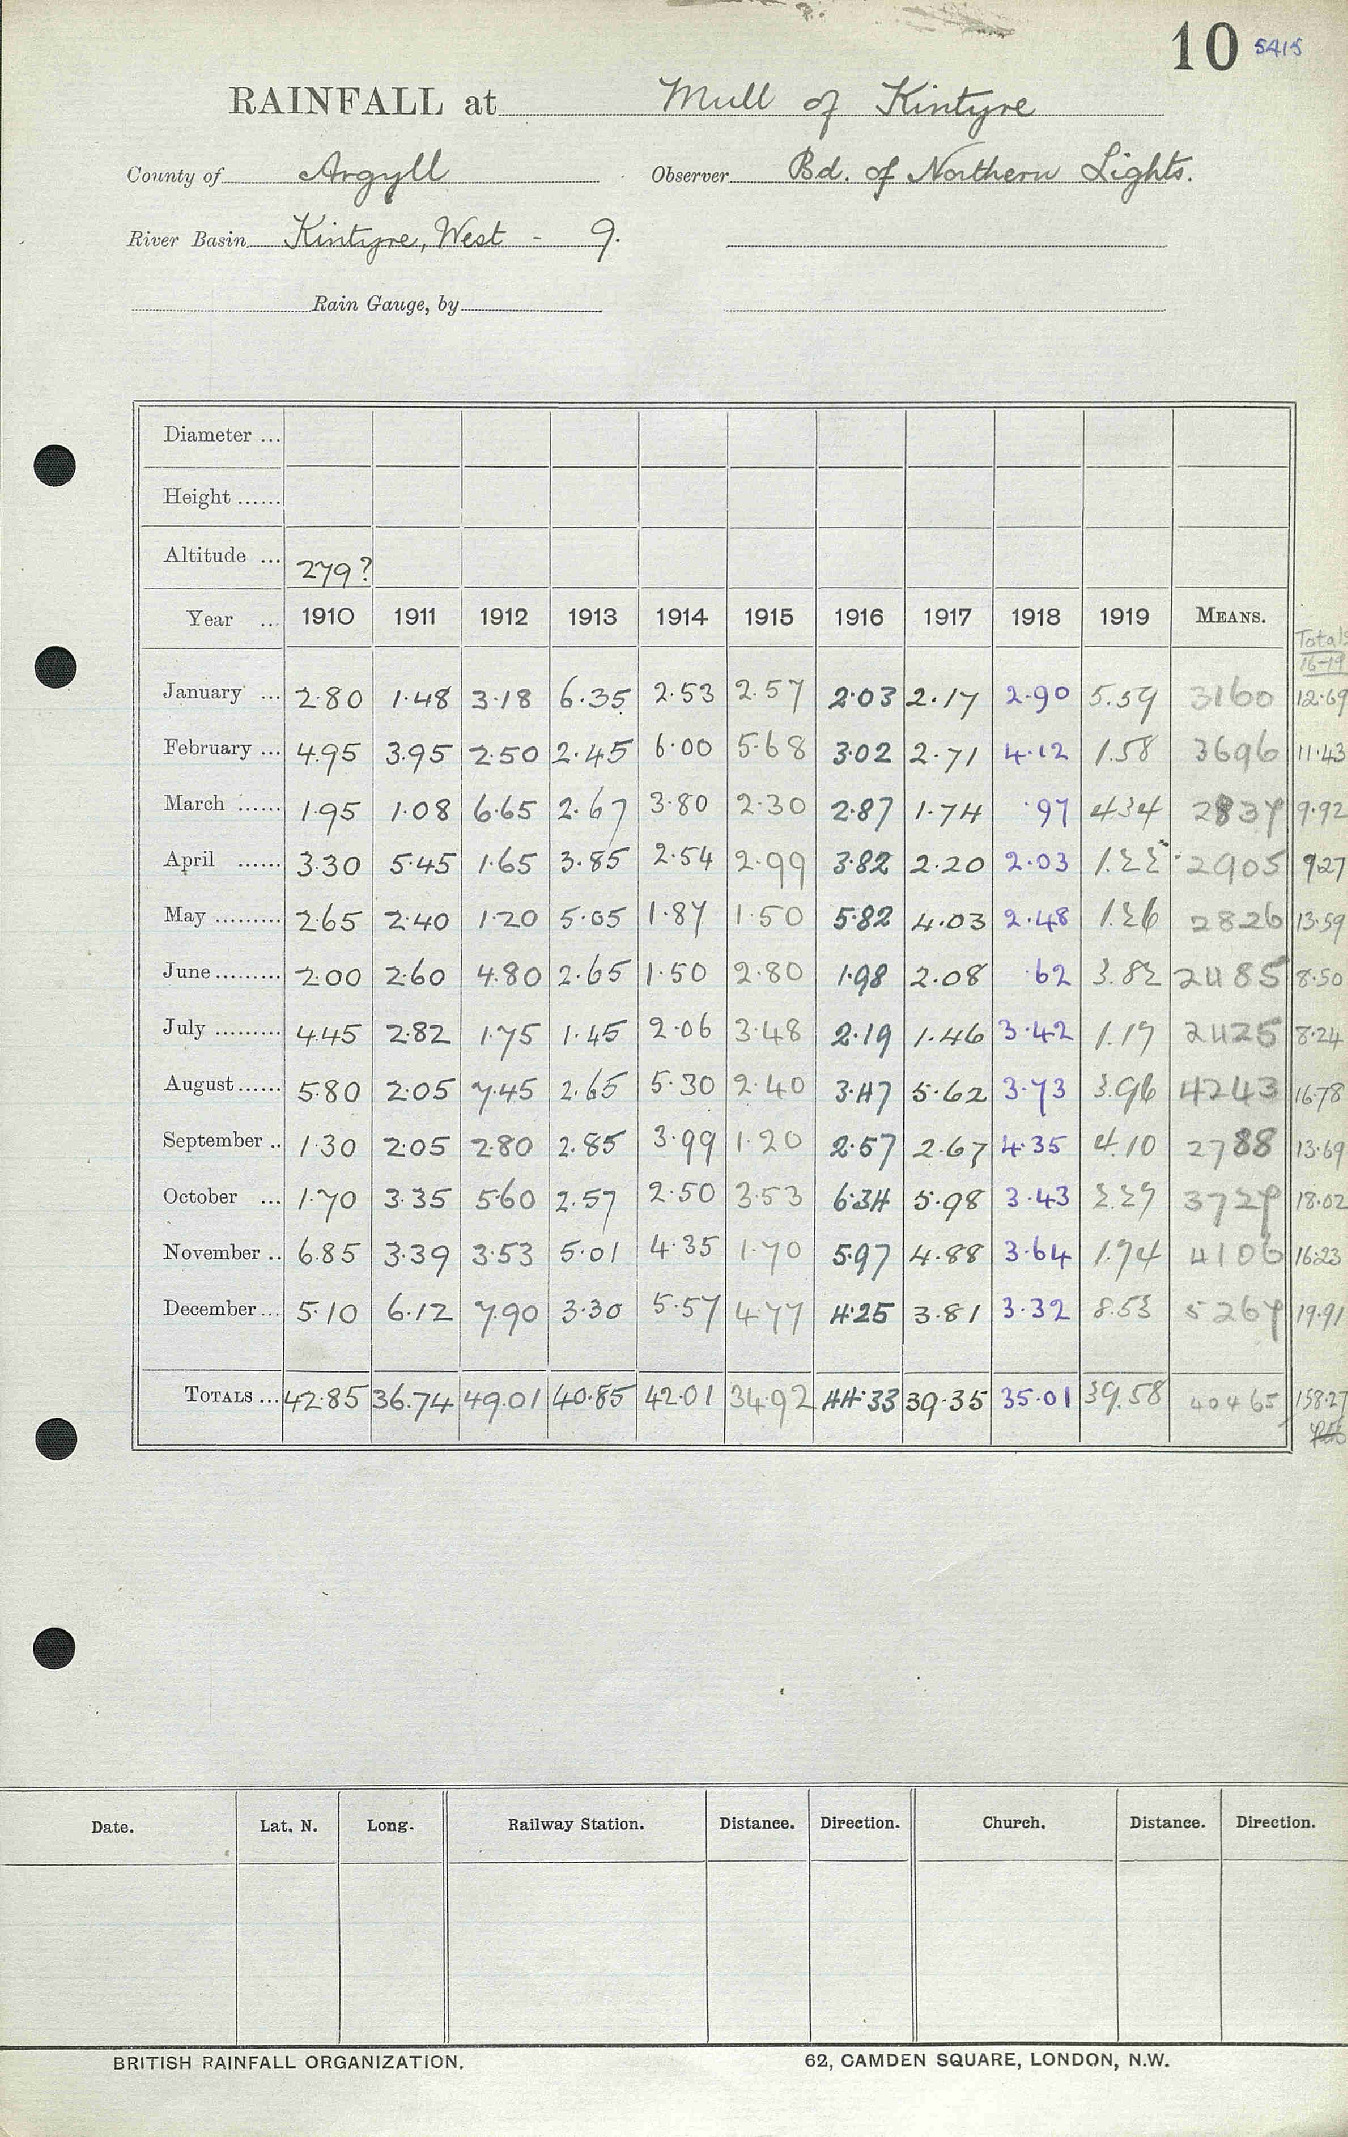 10 5415
RAINFALL at Mull of Kintyre
County of Argyll Observer Bd. of Northern Lights.
River Basin Kintyre, West - 9.
Rain Gauge, by
Diameter ...
Height ......
Altitude ... 279?
Year ... 1910 1911 1912 1913 1914 1915 1916 1917 1918 1919 MEANS. Totals 16-19
January ... 2.80 1.48 3.18 6.35 2.53 2.57 2.03 2.17 2.90 5.59 3160 12.69
February ... 4.95 3.95 2.50 2.45 6.00 5.68 3.02 2.71 4.12 1.58 3696 11.43
March ...... 1.95 1.08 6.65 2.67 3.80 2.30 2.87 1.74 .97 4.34 2837 9.92
April ...... 3.30 5.45 1.65 3.85 2.54 2.99 3.82 2.20 2.03 1.22 2905 9.27
May ......... 2.65 2.40 1.20 5.05 1.87 1.50 5.82 4.03 2.48 1.26 2826 13.59
June ......... 2.00 2.60 4.80 2.65 1.50 2.80 1.98 2.08 .62 3.82 2485 8.50
July ......... 4.45 2.82 1.75 1.45 2.06 3.48 2.19 1.46 3.42 1.17 2425 8.24
August ...... 5.80 2.05 7.45 2.65 5.30 2.40 3.47 5.62 3.73 3.96 4243 16.78
September .. 1.30 2.05 2.80 2.85 3.99 1.20 2.57 2.67 4.35 4.10 2788 13.69
October ... 1.70 3.35 5.60 2.57 2.50 3.53 6.34 5.98 3.43 2.27 3727 18.02
November .. 6.85 3.39 3.53 5.01 4.35 1.70 5.97 4.88 3.64 1.74 4106 16.23
December ... 5.10 6.12 7.90 3.30 5.57 4.77 4.25 3.81 3.32 8.53 5267 19.91
TOTALS ... 42.85 36.74 49.01 40.85 42.01 34.92 44.33 39.35 35.01 39.58 40465 158.27
Date. Lat. N. Long. Railway Station. Distance. Direction. Church. Distance. Direction.
BRITISH RAINFALL ORGANIZATION. 62, CAMDEN SQUARE, LONDON, N.W.